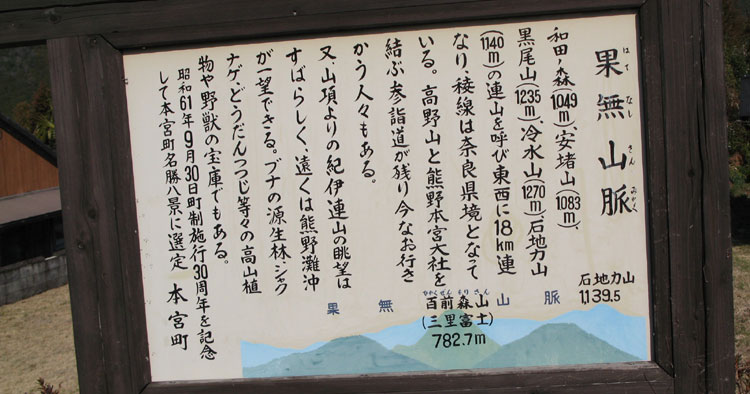 果無山脈
はてなしさんみゃく
和田ノ森(1049m)、安堵山(1083m)、
黒尾山(1235m)、冷水山(1270m)、石地力山
(1140m)の連山を呼び東西に18km連
なり、稜線は奈良県境となって
いる。高野山と熊野本宮大社を
結ぶ参詣道が残り今なお行き
かう人々もある。
又、山頂よりの紀伊連山の眺望は
すばらしく、遠くは熊野灘沖
が一望できる。ブナの源生林、シャク
ナゲ、どうだんつつじ等々の高山植
物や野獣の宝庫でもある。
昭和61年9月30日町制施行30周年を記念
して本宮町名勝八景に選定 本宮町
果無山脈
石地力山
1,139.5
ひゃくぜんもりさん
百前森山
(三里富士)
782.7m